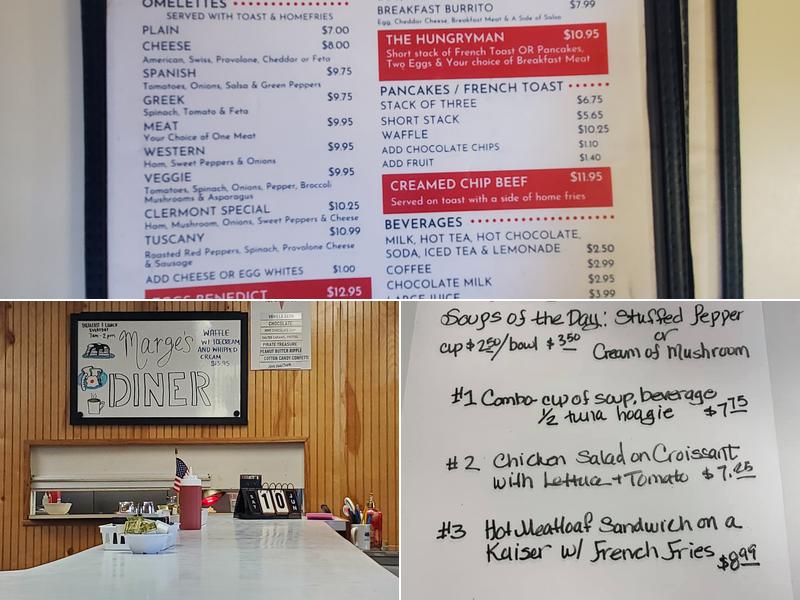 OMELETTES
SERVED WITH TOAST & HOMEFRIES
PLAIN $7.00
CHEESE $8.00
American, Swiss, Provolone, Cheddar or Feta
SPANISH $9.75
Tomatoes, Onions, Salsa & Green Peppers
GREEK $9.75
Spinach, Tomato & Feta
MEAT $9.95
Your Choice of One Meat
WESTERN $9.95
Ham, Sweet Peppers & Onions
VEGGIE $9.95
Tomatoes, Spinach, Onions, Pepper, Broccoli
Mushrooms & Asparagus
CLERMONT SPECIAL $10.25
Ham, Mushroom, Onions, Sweet Peppers & Cheese
TUSCANY $10.99
Roasted Red Peppers, Spinach, Provolone Cheese
& Sausage
ADD CHEESE OR EGG WHITES $1.00
EGGS BENEDICT $12.95
BREAKFAST BURRITO $7.99
Egg, Cheddar Cheese, Breakfast Meat & A Side of Salsa
THE HUNGRYMAN $10.95
Short stack of French Toast OR Pancakes,
Two Eggs & Your choice of Breakfast Meat
PANCAKES / FRENCH TOAST
STACK OF THREE $6.75
SHORT STACK $5.65
WAFFLE $10.25
ADD CHOCOLATE CHIPS $1.10
ADD FRUIT $1.40
CREAMED CHIP BEEF $11.95
Served on toast with a side of home fries
BEVERAGES
MILK, HOT TEA, HOT CHOCOLATE,
SODA, ICED TEA & LEMONADE $2.50
COFFEE $2.99
CHOCOLATE MILK $2.95
LARGE JUICE $3.99
BREAKFAST & LUNCH
EVERYDAY
7am - 2pm
Marge's
DINER
WAFFLE
W/ ICECREAM
AND WHIPPED
CREAM
$13.95
VANILLA BEAN
CHOCOLATE
MINT CHOCOLATE CHIP
SALTED CARAMEL PRETZEL
PIRATE TREASURE
PEANUT BUTTER RIPPLE
COTTON CANDY CONFETTI
10
Soups of the Day: Stuffed Pepper
or
cup $2.50/bowl $3.50 Cream of Mushroom
#1 Combo cup of soup, beverage
1/2 tuna hoagie $7.75
#2 Chicken Salad on Croissant
with Lettuce + Tomato $7.25
#3 Hot Meatloaf Sandwich on a
Kaiser w/ French Fries $8.99